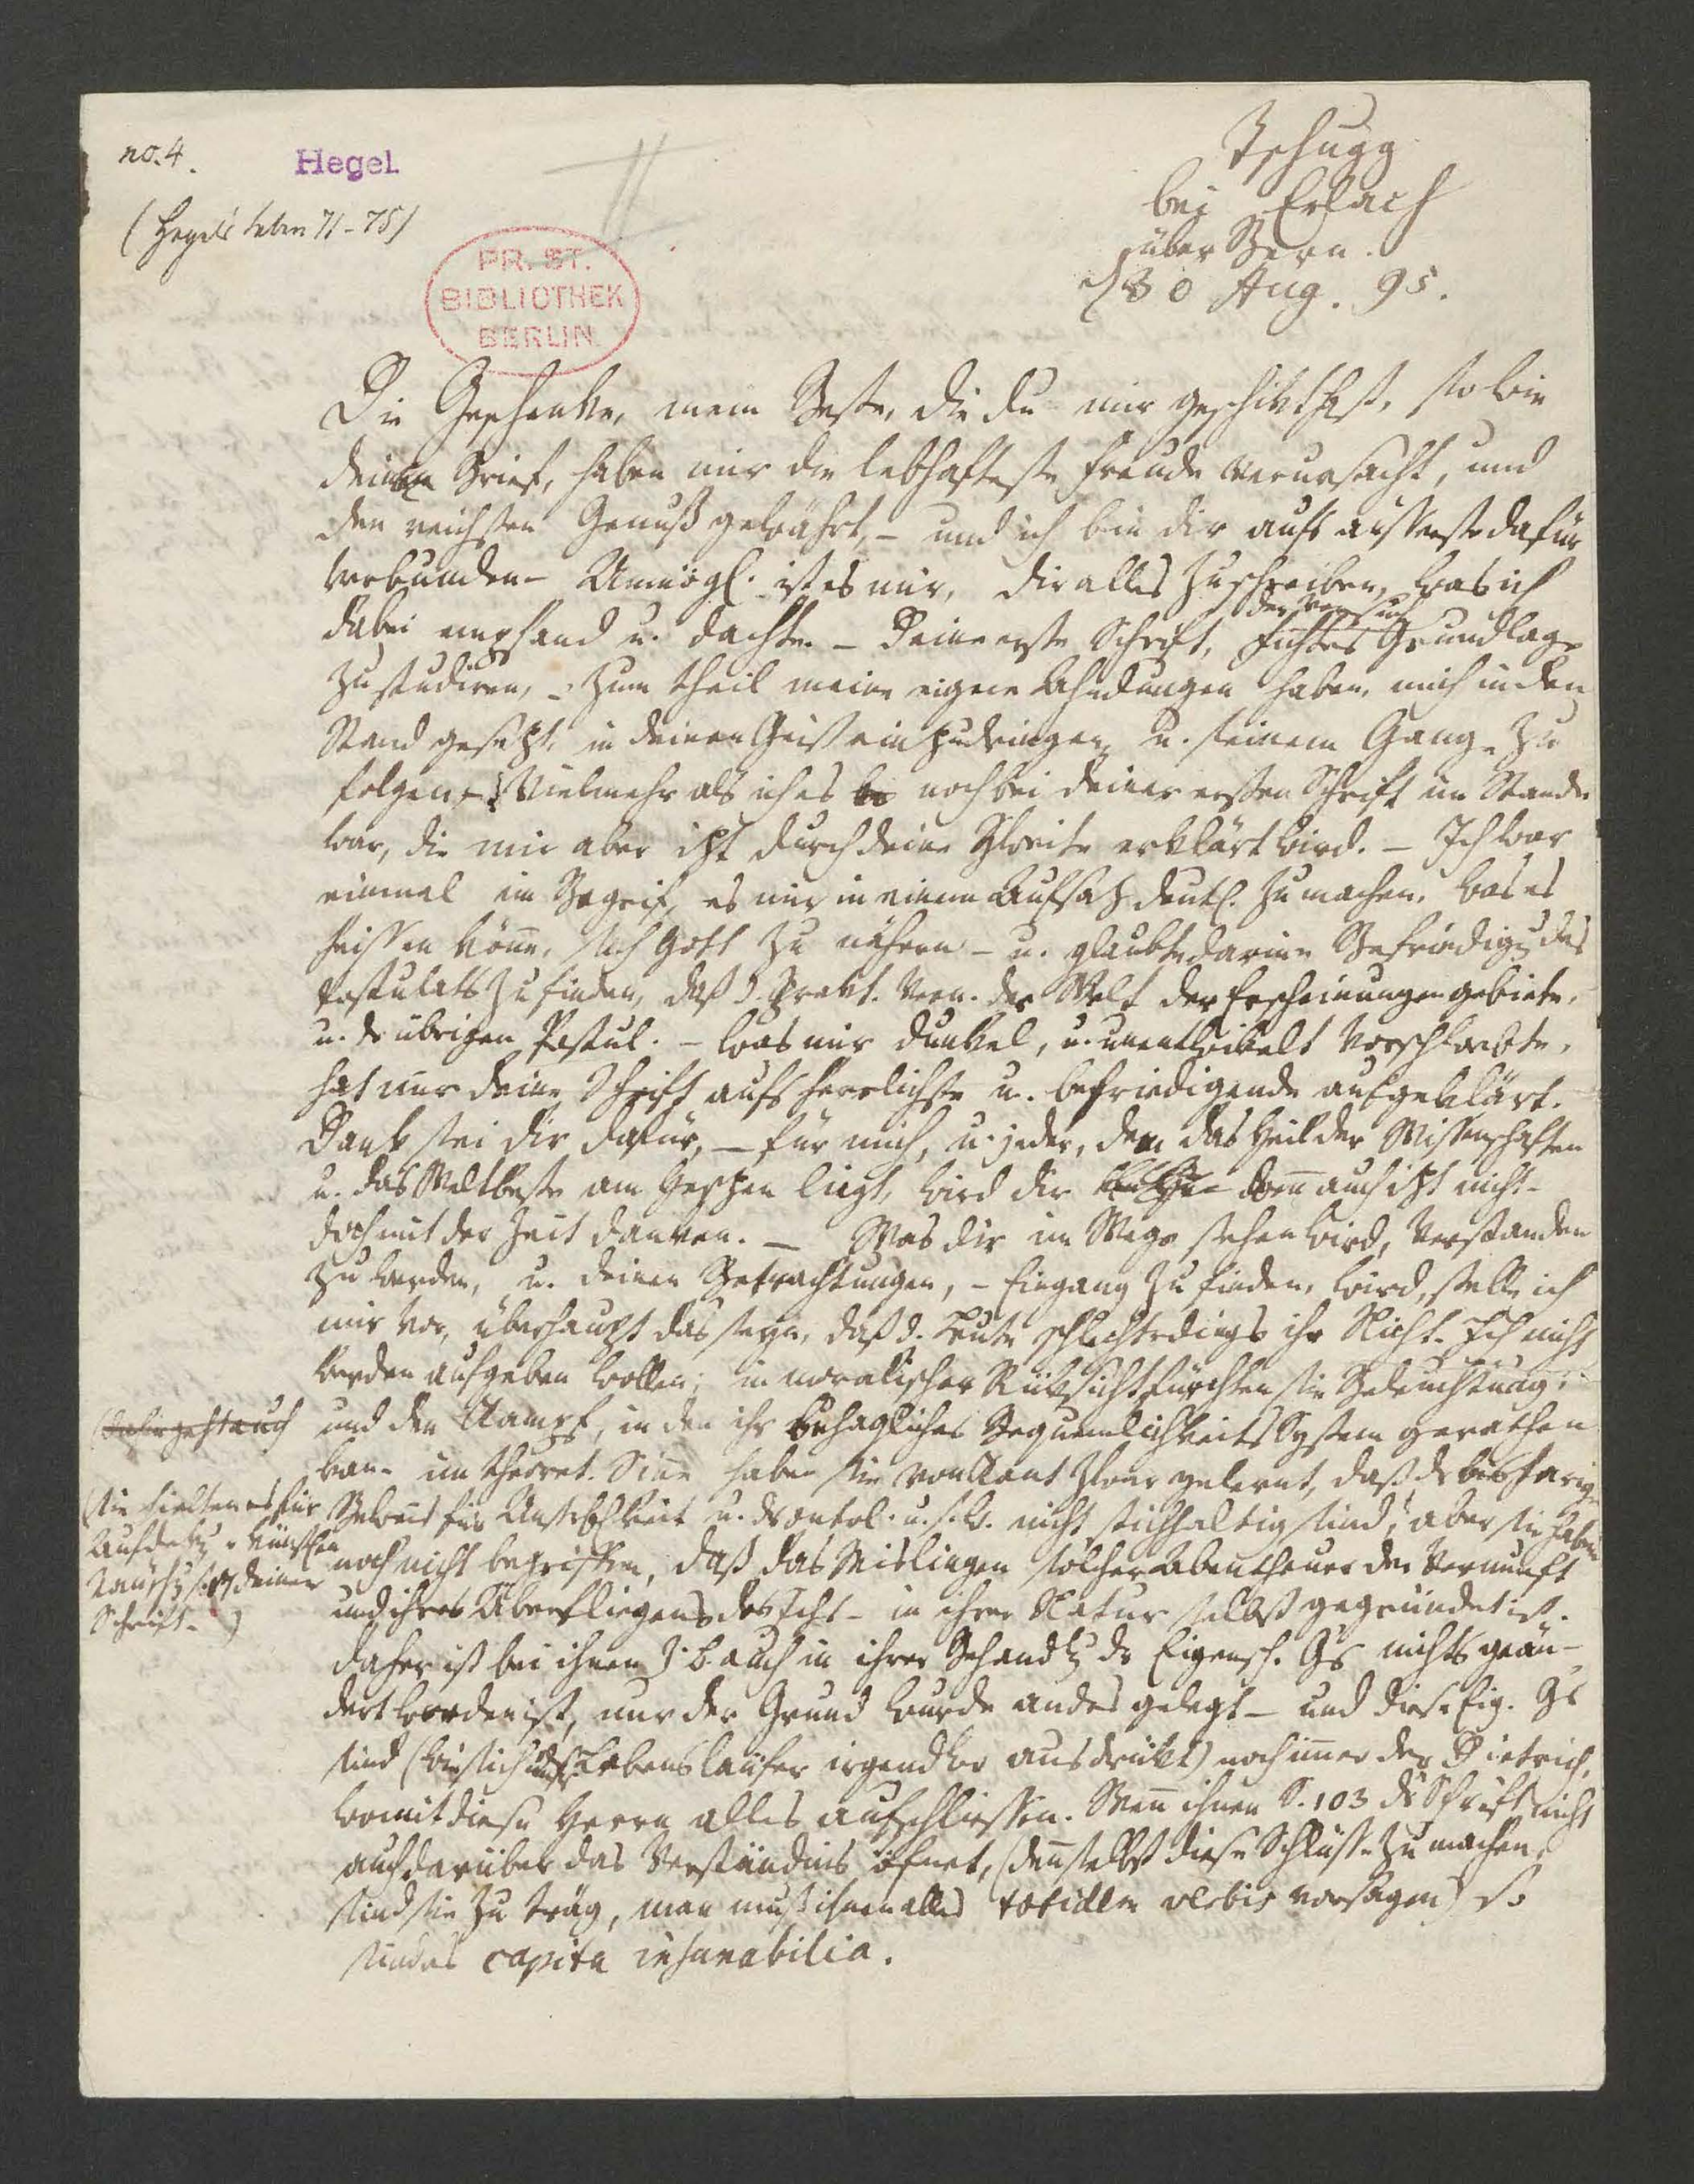 no. 4.
Hegel
(Hegels Leben 71-75)
PR. ST.
BIBLIOTHEK
BERLIN
Tschugg
bei Erlach
über Bern.
d 30 Aug. 95.
Die Geschenke, mein Bester, die du mir geschikt hast, so wie
deinen Brief, haben mir die lebhafteste Freude verursacht, und
den reichsten Genuß gewährt, – und ich bin dir aufs äusserste dafür
verbunden – Unmögl. ist es mir, dir alles zu schreiben, was ich
dabei empfand u. dachte. – Deine erste Schrift, der Versuch Fichtes Grundlage
zu studiren, – zum theil meine eigene Ahndungen haben mich in den
Stand gesezt, in deinen Geist einzudringen u. seinem Gange zu
folgen, – vielmehr als ich es noch bei deiner ersten Schrift im Stande
war, die mir aber izt durch deine Zweite erklärt wird. – Ich war
einmal im Begrif, es mir in einem Aufsaz deutl. zu machen, was es
heissen könne, sich Gott zu nähern – u. glaubte darinn Befriedigg des
Postulats zu finden, daß d. prakt. Vern. der Welt der Erscheinungen gebiete,
u. dr übrigen Postul. – was mir dunkel, u. unentwikelt vorschwebte,
hat mir deine Schrift aufs herrlichste u. befriedigende aufgeklärt.
Dank sei dir dafür, – für mich, u. jeder, dem das Heil der Wissenschaften
u. das Weltbeste am Herzen liegt, wird dir wenn auch izt nicht –
doch mit der Zeit danken. – Was dir im Wege stehen wird, verstanden
zu werden, u. deinen Betrachtungen, – Eingang zu finden, wird, stelle ich
mir vor, überhaupt das seyn, daß d. Leute schlechterdings ihr Nicht-Ich nicht
werden aufgeben wollen; in moralischer Rüksicht fürchten sie Beleuchtung,
(daher geht auch
und den Kampf, in den ihr behagliches Bequemlichkeits System gerathen
kann – im theoret. Sinne haben sie von Kant zwar gelernt, daß dr bisherige
(sie hielten es für
Aufdekg e. künstlen
Täuschg s. 17 deiner
Schrift –)
Beweis für Unsterblkeit u. dr ontol. u.s.w. nicht stichhaltig sind, aber sie haben
noch nicht begriffen, daß das Mislingen solcher Abentheuer der Vernunft
und ihres Überfliegens des Ichs – in ihrer Natur selbst gegründet ist.
daher ist bei ihnen z.b. auch in ihrer Behandlg dr Eigensch. Gs nichts geän-
dert worden ist, nur der Grund wurde anders gelegt – und diese Eig. Gs
sind (wie sich unser Lebensläufer irgendwo ausdrükt) noch immer der Dietrich,
womit diese Herrn alles aufschliessen. Wenn ihnen S. 103 dr Schrift nicht
auch darüber das Verständnis öfnet, (denn selbst diese Schlüsse zu machen,
sind sie zu träg, man muß ihnen alles totidem verbis vorsagen) so
sind es capita insanabilia.